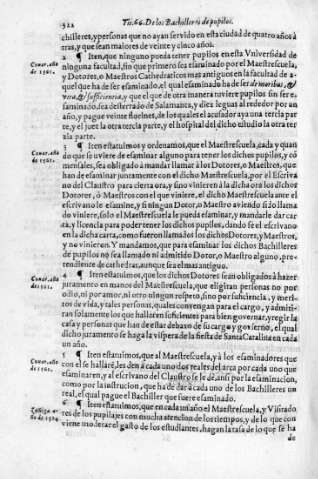 322
Tit. 66. De los Bachilleres de pupilos.
chilleres, y personas que no ayan servido en esta ciudad de quatro años a
tras, y que sean mayores de veinte y cinco años.
Cōuar. año de 1561.
2 ¶ Iten, que ninguno pueda tener pupilos en esta Vniversidad de
ninguna facultad, sin que primero sea esaminado por el Maestrescuela,
y Dotores, o Maestros Cathedraticos mas antiguos en la facultad de a-
quel que ha de ser esaminado, el qual esaminado ha de ser de meritis, &
vita, & sufficientia, y que el que de otra manera tuviere pupilos sin ser e-
saminado, sea desterrado de Salamanca, y diez leguas al rededor por un
año, y pague veinte florines, de los quales el acusador aya una tercia par
te, y el juez la otra tercia parte, y el hospital del dicho estudio la otra ter
cia parte.
Cōuar. año de 1561.
3 ¶ Iten estatuimos y ordenamos, que el Maestrescuela, cada y quan
do que se uviere de esaminar alguno para tener los dichos pupilos, y có
mensales, sea obligado à mandar llamar à los Dotores, o Maestros, que
han de esaminar juntamente con el dicho Maestrescuela, por el Escriva
no del Claustro para cierta ora, y si no vinieren à la dicha ora los dichos
Dotores, ò Maestros con el que viniere, el dicho Maestrescuela ante el
escrivano le esamine, y si ningun Dotor, o Maestro aviendo sido llama
do viniere, solo el Maestrescuela le pueda esaminar, y mandarle dar car
ta, y licencia para poder tener los dichos pupilos, dando fe el escrivano
en la dicha carta, como fueron llamados los dichos Dotores, y Maestros,
y no vinieron. Y mandamos, que para esaminar los dichos Bachilleres
de pupilos no sea llamado ni admitido Dotor, o Maestro alguno, pre-
tendiente de cathedras, aunque sea el mas antiguo.
Cōuar. año de 1561.
4 ¶ Iten estatuimos, que los dichos Dotores sean obligados à hazer
juramento en manos del Maestrescuela, que eligiran personas no por
odio, ni por amor, ni otro ningun respeto, sino por suficiencia, y meri-
tos de vida, y tales personas, quales convengan para el cargo, y admiti-
ran solamente los que hallaren suficientes para bien governar, y regir la
casa y personas que han de estar debaxo de su cargo y govierno, el qual
dicho juramento se haga la vispera de la fiesta de Santa Catalina en cada
un año.
Cōuar. año de 1561.
5 ¶ Iten estatuimos, que al Maestrescuela, y à los esaminadores que
con el se hallare, les den à cada uno dos reales del arca por cada uno que
esaminaren, y al escrivano del Claustro se le dè, ansi por la esaminacion,
como por la instrucion, que ha de dar à cada uno de los Bachilleres un
real, el qual pague el Bachiller que fuere esaminado.
año de 1594
6 ¶ Iten estatuimos, que en cada un año el Maestrescuela, y Visitado
res de los pupilajes con mucha atencion de los tiempos, y de lo que con
viene moderar el gasto de los estudiantes, hagan la tasa de lo que se ha
de